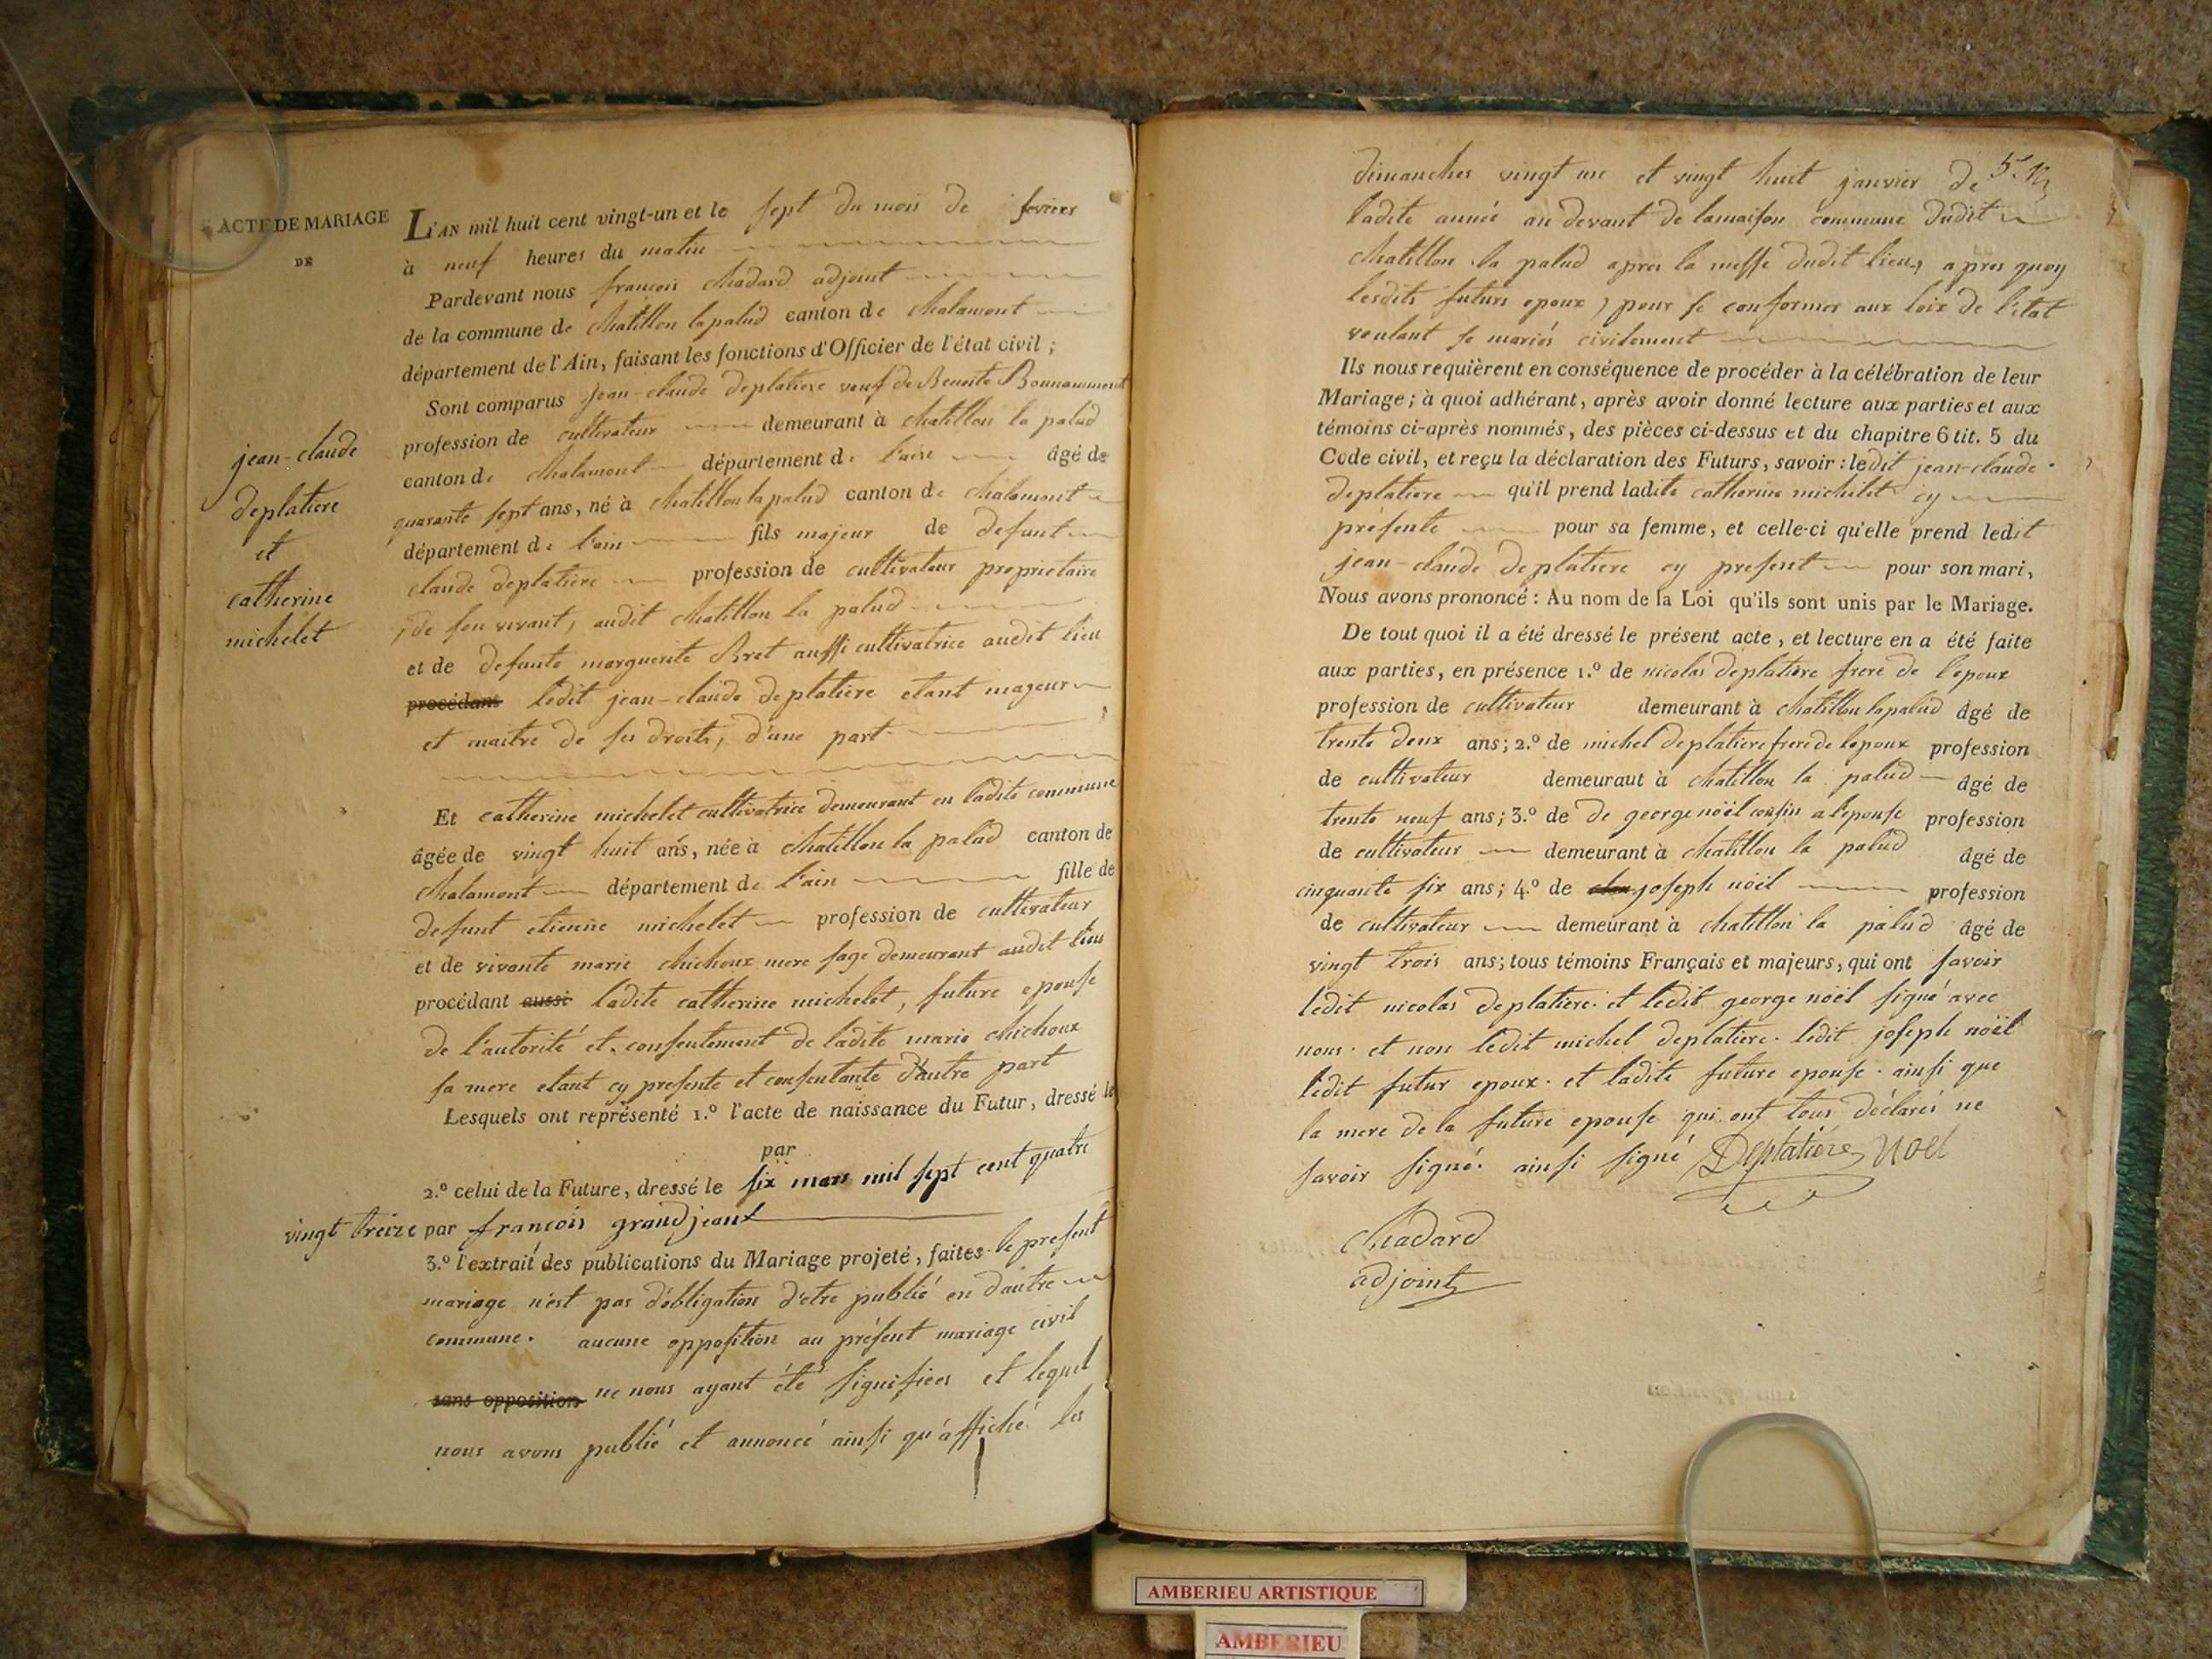 ACTE DE MARIAGE
DE
jean-claude
deplatiere
et
catherine
michelet
L'AN mil huit cent vingt-un et le sept du mois de fevrier
à neuf heures du matin
Pardevant nous françois chadard adjoint
de la commune de chatillon lapalud canton de chalamont
département de l'Ain, faisant les fonctions d'Officier de l'état civil ;
Sont comparus jean-claude deplatiere veuf de Benoite Bonnamment
profession de cultivateur demeurant à chatillon la palud
canton de chalamont département de l'ain âgé de
quarante sept ans, né à chatillon lapalud canton de chalamont
département de l'ain fils majeur de defunt
claude deplatière profession de cultivateur proprietaire
, de son vivant, audit chatillon la palud
et de defunte marguerite Bret aussi cultivatrice audit lieu
procédans ledit jean-claude deplatière etant mageur
et maitre de ses droits, d'une part
Et catherine michelet cultivatrice demeurant en ladite commune
âgée de vingt huit ans, née à chatillon la palud canton de
chalamont département de l'ain fille de
defunt etienne michelet profession de cultivateur
et de vivante marie chichoux mere sage demeurant audit lieu
procédant aussi ladite catherine michelet, future epouse
de l'autorité et consentement de ladite marie chichoux
sa mere etant cy presente et consentante d'autre part
Lesquels ont représenté 1.º l'acte de naissance du Futur, dressé le
par
2.º celui de la Future, dressé le six mars mil sept cent quatre
vingt treize par françois grandjean
3.º l'extrait des publications du Mariage projeté, faites le present
mariage n'est pas d'obligation d'etre publié en d'autre
commune. aucune opposition au présent mariage civil
sans opposition ne nous ayant été signifiées et lequel
nous avons publié et annoncé ainsi qu'affiché les
dimanches vingt un et vingt huit janvier de
ladite année au devant de lamaison commune dudit
chatillon la palud apres la messe dudit lieu, apres quoy
lesdits futurs epoux, pour se conformer aux loix de l'etat
voulant se mariés civilement
Ils nous requièrent en conséquence de procéder à la célébration de leur
Mariage ; à quoi adhérant, après avoir donné lecture aux parties et aux
témoins ci-après nommés, des pièces ci-dessus et du chapitre 6 tit. 5 du
Code civil, et reçu la déclaration des Futurs, savoir : ledit jean-claude
deplatiere qu'il prend ladite catherine michelet cy
présente pour sa femme, et celle-ci qu'elle prend ledit
jean-claude deplatiere cy present pour son mari,
Nous avons prononcé : Au nom de la Loi qu'ils sont unis par le Mariage.
De tout quoi il a été dressé le présent acte, et lecture en a été faite
aux parties, en présence 1.º de nicolas deplatière frere de l'epoux
profession de cultivateur demeurant à chatillon lapalud âgé de
trente deux ans ; 2.º de michel deplatiere frere de lepoux profession
de cultivateur demeurant à chatillon la palud âgé de
trente neuf ans ; 3.º de de george noël cousin a l'epouse profession
de cultivateur demeurant à chatillon la palud âgé de
cinquante six ans ; 4.º de joseph nöel profession
de cultivateur demeurant à chatillon la palud âgé de
vingt trois ans ; tous témoins Français et majeurs, qui ont savoir
ledit nicolas deplatiere. et ledit george nöel signé avec
nous. et non ledit michel deplatiere. ledit joseph noël
ledit futur epoux. et ladite future epouse. ainsi que
la mere de la future epouse qui ont tous déclarés ne
savoir signé. ainsi signé Deplatière noel
chadard
adjoint
AMBERIEU ARTISTIQUE
AMBERIEU